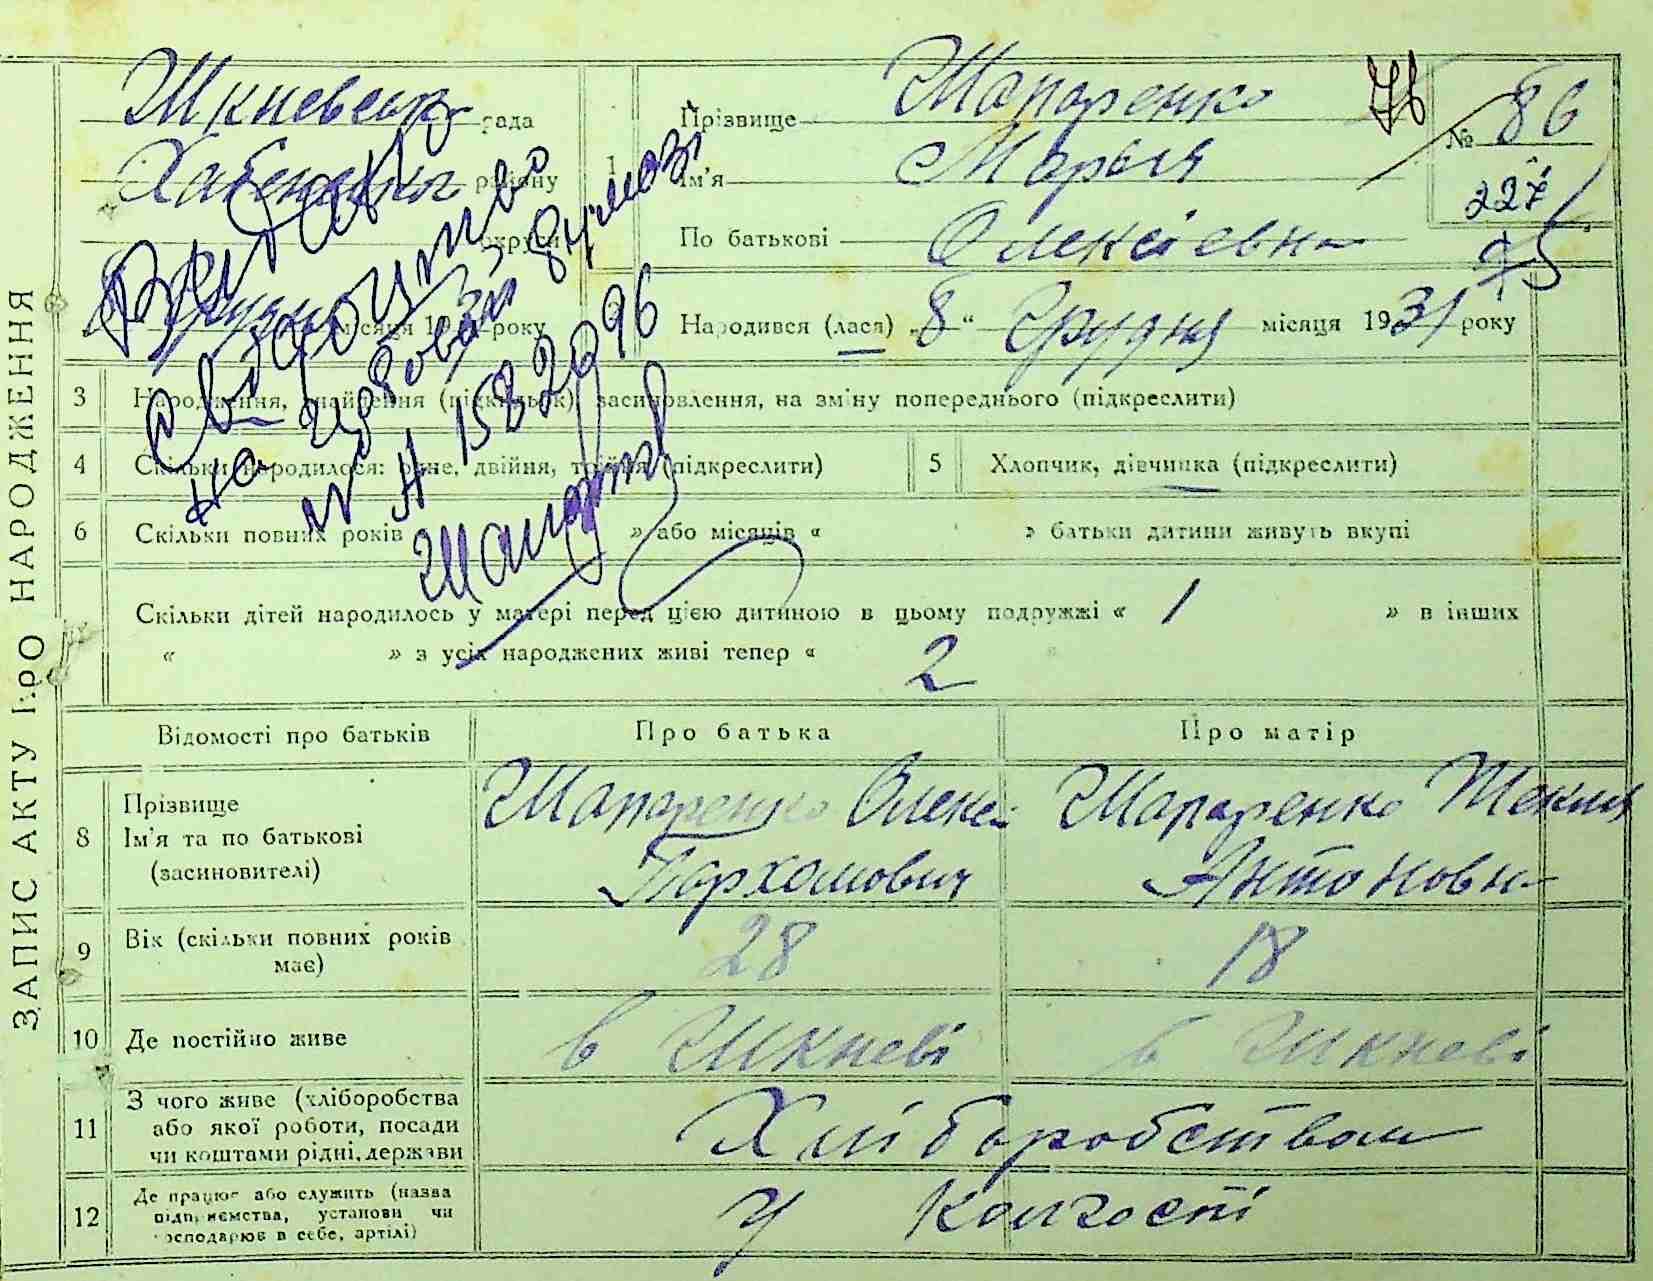 ЗАПИС АКТУ ПРО НАРОДЖЕННЯ
Шкневська рада
Хабенського району
округи
місяця 19 року
1 Прізвище Шапаренко
Ім’я Марыя
По батькові Олексієвна
№ 86
227
Народився (лася) „8“ Грудня місяця 1931 року
3 Народження, знайдення (підкидьок), засиновлення, на зміну попереднього (підкреслити)
4 Скільки народилося: одне, двійня, трійня (підкреслити)
5 Хлопчик, дівчинка (підкреслити)
6 Скільки повних років » або місяців « » батьки дитини живуть вкупі
Скільки дітей народилось у матері перед цією дитиною в цьому подружжі « 1 » в інших
« » з усіх народжених живі тепер « 2
№ 1582996
Відомості про батьків Про батька Про матір
8 Прізвище
Ім’я та по батькові
(засиновителі)
Шапаренко Олексій
Пархомович
Шапаренко Текля
Антоновна
9 Вік (скільки повних років
має)
28 18
10 Де постійно живе в Шкневі в Шкневі
11 З чого живе (хліборобства
або якої роботи, посади
чи коштами рідні, держави
Хліборобством
12 Де працює або служить (назва
підприємства, установи чи
господарює в себе, артілі)
У Колгоспі